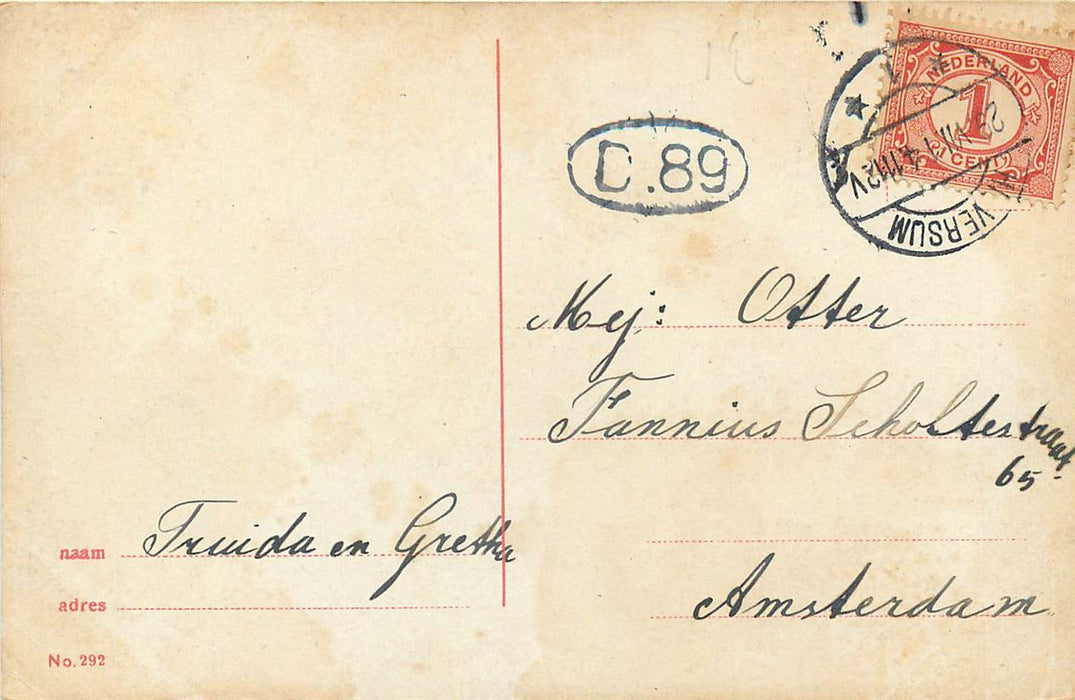 D.89
NEDERLAND
1
CENT
VERSUM
Mej: Otter
Fannius Scholtestraat
65.
Amsterdam
naam Truida en Gretha
adres
No. 292